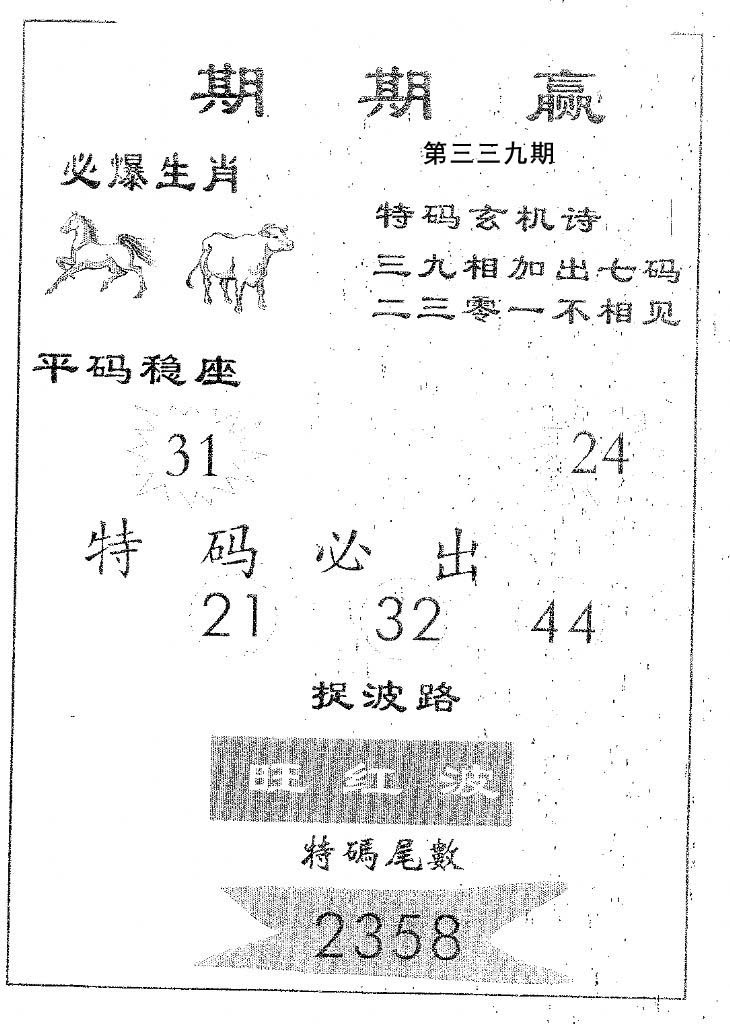 期期赢
第三三九期
必爆生肖
特码玄机诗
三九相加出七码
二三零一不相见
平码稳座
31 24
特码必出
21 32 44
捉波路
旺红波
特碼尾數
2358